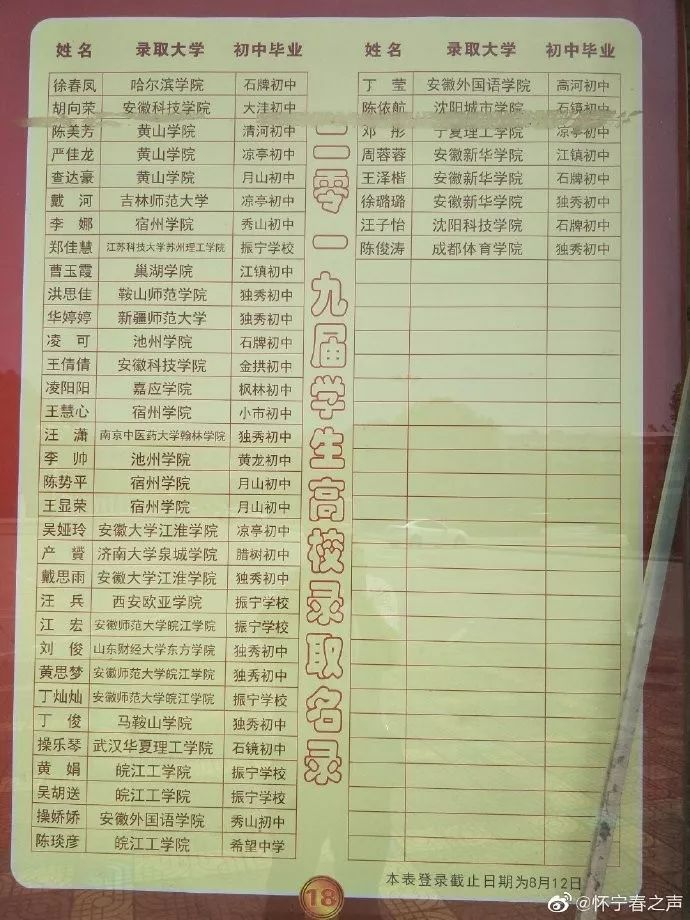 姓名 录取大学 初中毕业
徐春凤 哈尔滨学院 石牌初中
胡向荣 安徽科技学院 大洼初中
陈美芳 黄山学院 清河初中
严佳龙 黄山学院 凉亭初中
查达豪 黄山学院 月山初中
戴河 吉林师范大学 凉亭初中
李娜 宿州学院 秀山初中
郑佳慧 江苏科技大学苏州理工学院 振宁学校
曹玉霞 巢湖学院 江镇初中
洪思佳 鞍山师范学院 独秀初中
华婷婷 新疆师范大学 独秀初中
凌可 池州学院 石牌初中
王倩倩 安徽科技学院 金拱初中
凌阳阳 嘉应学院 枫林初中
王慧心 宿州学院 小市初中
汪潇 南京中医药大学翰林学院 独秀初中
李帅 池州学院 黄龙初中
陈势平 宿州学院 月山初中
王显荣 宿州学院 月山初中
吴娅玲 安徽大学江淮学院 凉亭初中
产赟 济南大学泉城学院 腊树初中
戴思雨 安徽大学江淮学院 独秀初中
汪兵 西安欧亚学院 振宁学校
江宏 安徽师范大学皖江学院 振宁学校
刘俊 山东财经大学东方学院 独秀初中
黄思梦 安徽师范大学皖江学院 独秀初中
丁灿灿 安徽师范大学皖江学院 振宁学校
丁俊 马鞍山学院 独秀初中
操乐琴 武汉华夏理工学院 石镜初中
黄娟 皖江工学院 振宁学校
吴胡送 皖江工学院 振宁学校
操娇娇 安徽外国语学院 秀山初中
陈琰彦 皖江工学院 希望中学
二零一九届学生高校录取名录
姓名 录取大学 初中毕业
丁莹 安徽外国语学院 高河初中
陈依航 沈阳城市学院 石镜初中
邓彤 宁夏理工学院 凉亭初中
周蓉蓉 安徽新华学院 江镇初中
王泽楷 安徽新华学院 石牌初中
徐璐璐 安徽新华学院 独秀初中
汪子怡 沈阳科技学院 石牌初中
陈俊涛 成都体育学院 独秀初中
本表登录截止日期为8月12日
18
@怀宁春之声